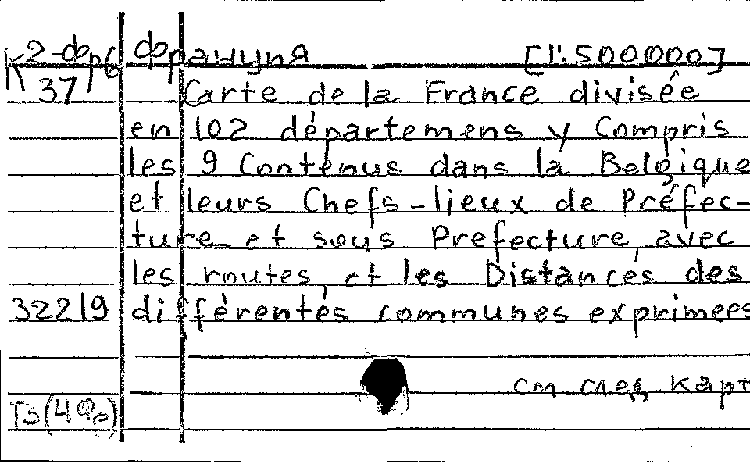 К 2-фр6 Франция [1:500000]
37 Carte de la France divisée
en 102 départemens y Compris
les 9 Contenus dans la Belgique
et leurs Chefs-lieux de Préfec-
ture et sous Prefecture, avec
les routes, et les Distances des
32219 différentes communes exprimees
см след карт